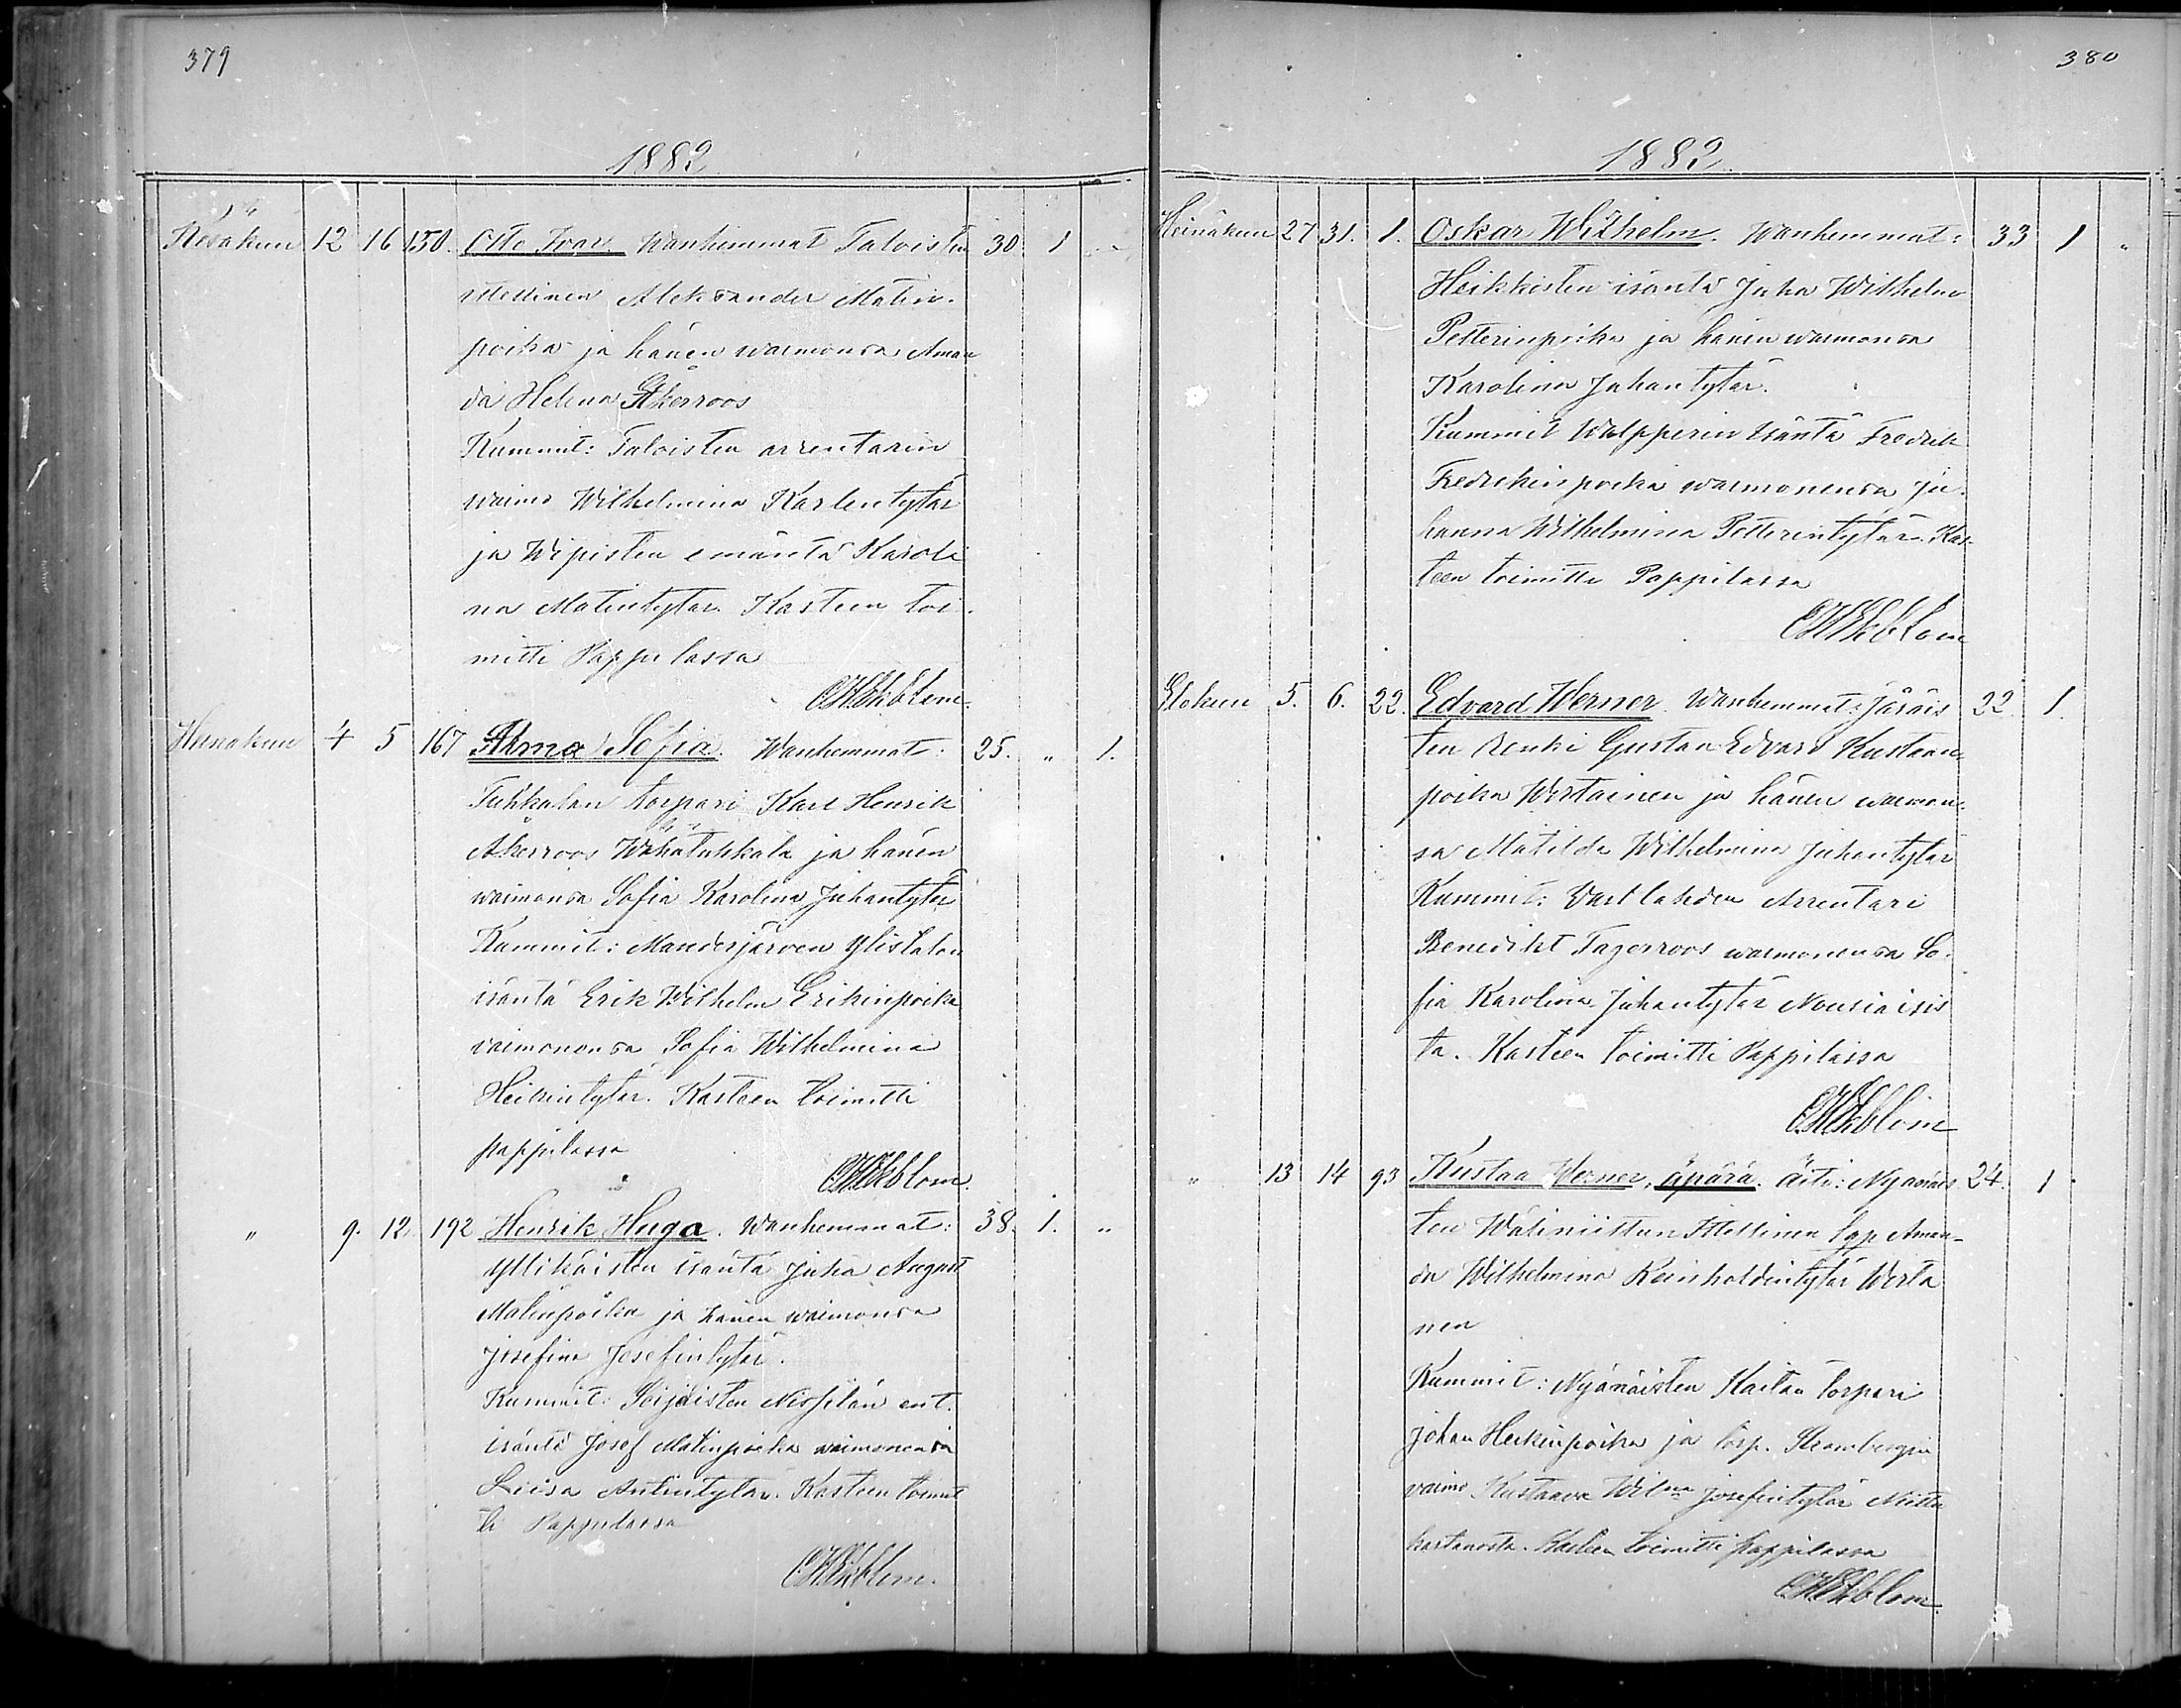 379
1882
Kesäkuu 12 16 150. Otto Ivar. Wanhemmat Taloisten 30 1 "
ittellinen Aleksander Matin-
poika ja hänen waimonsa Aman
da Helena Åkerroos
Kummit: Taloisten arrentarin
waimo Wilhelmina Karlentytär
ja Wipisten emäntä Karoli
na Matintytär. Kasteen toi-
mitti Pappilassa
CWEkblom.
Heinäkuu 4 5 167 Alma Sofia. Wanhemmat: 25. " 1.
Tuhkalan torpari Karl Henrik
Åkerroos Wähätuhkala ja hänen
waimonsa Sofia Karolina Juhantytär
Kummit: Manderjärven Ylistalon
isäntä Erik Wilhelm Erikinpoika
vaimononsa Sofia Wilhelmina
Heikintytär. Kasteen toimitti
pappilassa
CWEkblom.
" 9. 12. 192 Henrik Hugo. Wanhemmat: 38. 1. "
Yllikäisten isäntä Juha August
Matinpoika ja hänen waimonsa
Josefina Josefintytär.
Kummit: Soijaisten ent.
isäntä Josef Matinpoika waimonensa
Liisa Antintytär. Kasteen toimit
ti Pappilassa
CWEkblom.
380
1882.
Heinäkuu 27 31. 1. Oskar Wilhelm. Wanhemmat: 33 1 "
Heikkisten isäntä Juha Wilhelm
Petterinpoika ja hänen waimonsa
Karolina Juhantytär.
Kummit Wolpperin Isäntä Fredrik
Fredrikinpoika waimonensa Ju-
hanna Wilhelmina Petterintytär. Kas-
teen toimitti Pappilassa
CWEkblom
Elokuu 5. 6. 22. Edvard Werner. Wanhemmat: Järäis 22 1.
ten renki Gustaa Edvard Kustaan
poika Wirtainen ja hänen waimon-
sa Matilda Wilhelmina Juhantytär
Kummit: Varlahden Arrentari
Benedikt Fagerroos waimonensa So-
fia Karolina Juhantytär Nousiaisis
ta. Kasteen toimitti Pappilassa
CWEkblom
" 13 14 93 Kustaa Werner, äpärä. Äiti: Nyänäis 24. 1
ten Wäliniittun Ittellinen lap. Aman-
da Wilhelmina Reinholdintytär Wirta
nen
Kummit: Nyänäisten Kaitan torpari
Johan Heikinpoika ja torp. Strombergin
vaimo Kustaava Wilna Josefintytär Niittu
kartanosta. Kasteen toimitti pappilassa
CWEkblom.